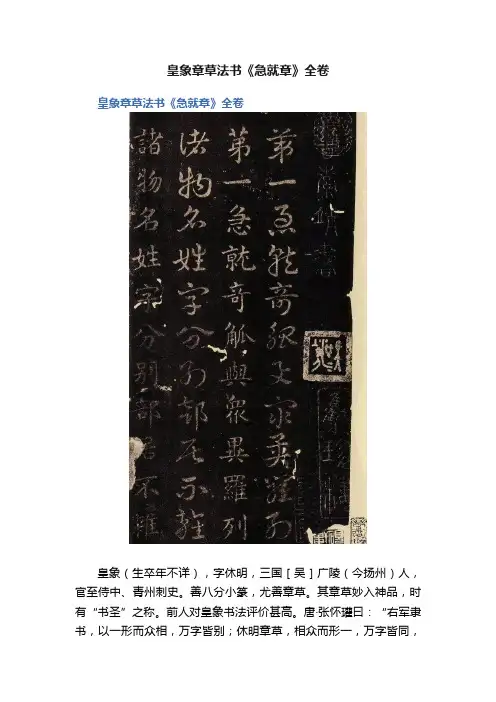 皇象章草法书《急就章》全卷
皇象章草法书《急就章》全卷
第一急就奇觚與衆異羅列
第一急就奇觚與衆異羅列
諸物名姓字分別部居不雜
諸物名姓字分別部居不雜
皇象（生卒年不详），字休明，三国［吴］广陵（今扬州）人，
官至侍中、青州刺史。善八分小篆，尤善章草。其章草妙入神品，时
有“书圣”之称。前人对皇象书法评价甚高。唐·张怀瓘曰：“右军隶
书，以一形而众相，万字皆别；休明章草，相众而形一，万字皆同，